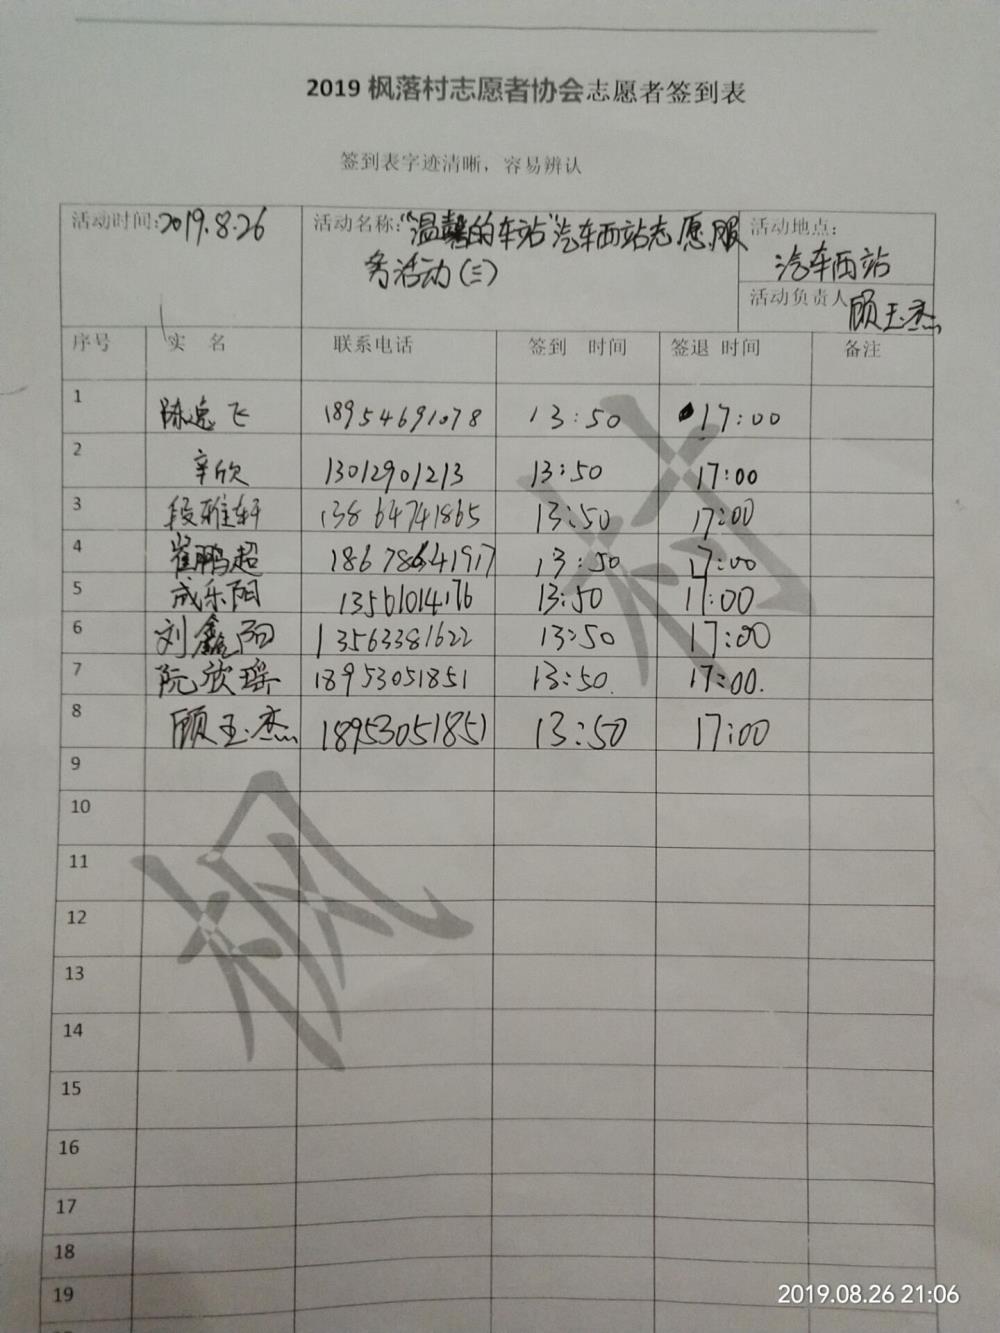 2019 枫落村志愿者协会志愿者签到表
签到表字迹清晰，容易辨认
活动时间：2019.8.26 活动名称：“温馨的车站”汽车西站志愿服 活动地点：
务活动（三） 汽车西站
活动负责人 顾玉杰
序号 实 名 联系电话 签到 时间 签退 时间 备注
1 陈逸飞 18954691078 13:50 17:00
2 辛欣 13012901213 13:50 17:00
3 段雅轩 13864741865 13:50 17:00
4 崔鹏超 18678641917 13:50 17:00
5 成乐阳 13561014176 13:50 17:00
6 刘鑫阳 13563381622 13:50 17:00
7 阮欣瑶 18953051851 13:50. 17:00.
8 顾玉杰 18953051851 13:50 17:00
9
10
11
12
13
14
15
16
17
18
19
枫
村
2019.08.26 21:06